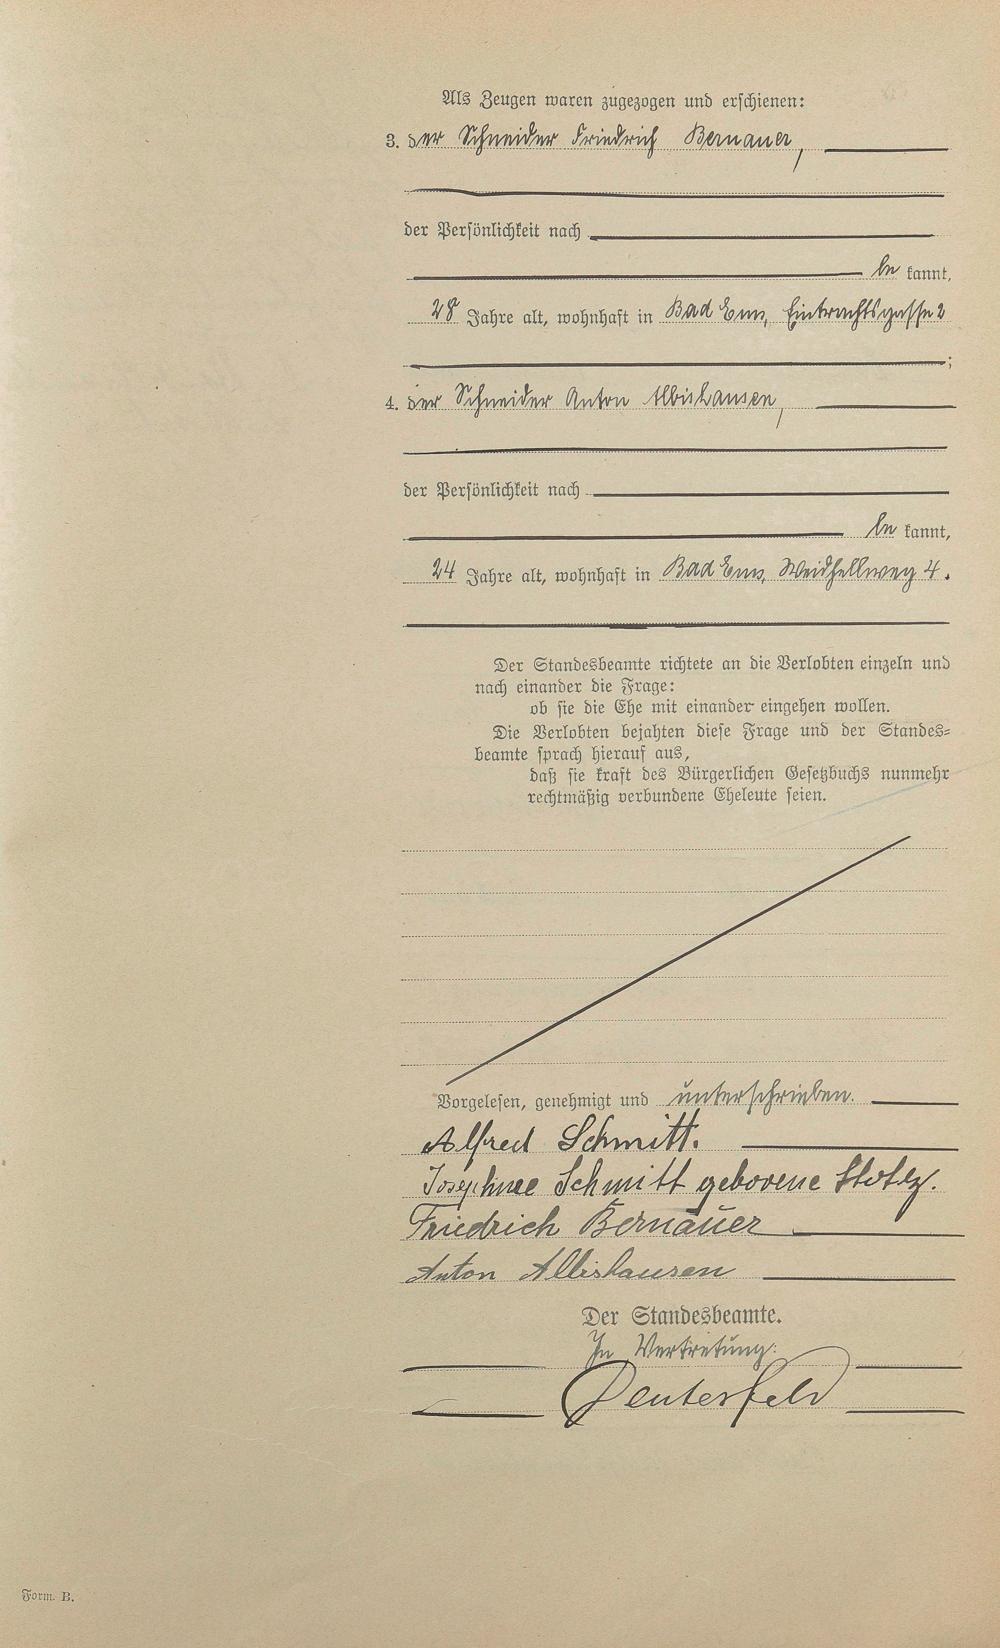 Als Zeugen waren zugezogen und erschienen:
3. der Schneider Friedrich Bernauer,
der Persönlichkeit nach
be kannt,
28 Jahre alt, wohnhaft in Bad Ems, Eintrachtsgasse 2
;
4. der Schneider Anton Albishausen,
der Persönlichkeit nach
be kannt,
24 Jahre alt, wohnhaft in Bad Ems, Weidhellweg 4.
Der Standesbeamte richtete an die Verlobten einzeln und
nach einander die Frage:
ob sie die Ehe mit einander eingehen wollen.
Die Verlobten bejahten diese Frage und der Standes=
beamte sprach hierauf aus,
daß sie kraft des Bürgerlichen Gesetzbuchs nunmehr
rechtmäßig verbundene Eheleute seien.
Vorgelesen, genehmigt und unterschrieben.
Alfred Schmitt.
Schmitt geborene
Friedrich Bernauer
Anton Albishausen
Der Standesbeamte.
In Vertretung:
Form. B.